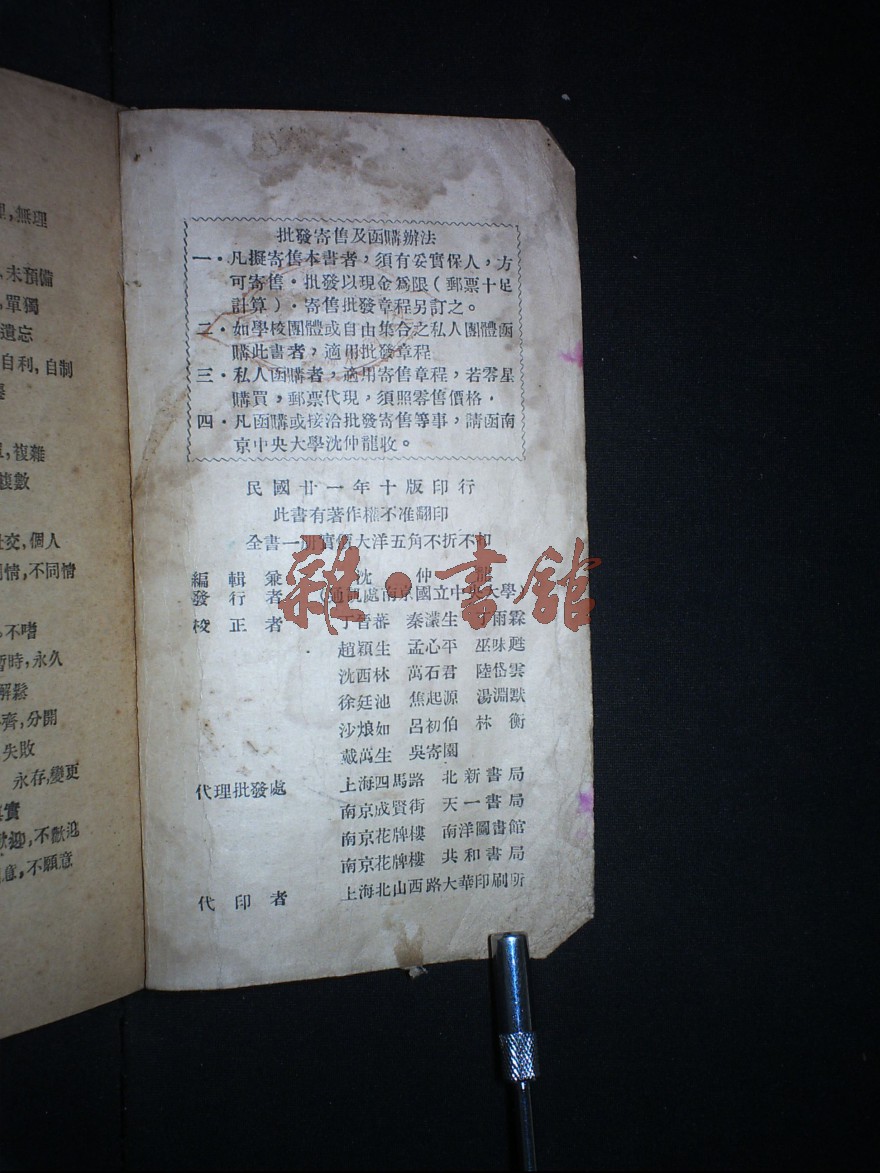 理,無理
未預備
單獨
遺忘
自利, 自制
複雜
複數
社交, 個人
同情, 不同情
不嗜
暫時, 永久
解鬆
齊, 分開
失敗
永存, 變更
真實
歡迎, 不歡迎
意, 不願意
批發寄售及函購辦法
一・凡擬寄售本書者,須有妥實保人,方
可寄售・批發以現金爲限(郵票十足
計算)・寄售批發章程另訂之。
二・如學校團體或自由集合之私人團體函
購此書者,適用批發章程
三・私人函購者,適用寄售章程,若零星
購買,郵票代現,須照零售價格,
四・凡函購或接洽批發寄售等事,請函南
京中央大學沈仲龍收。
民國廿一年十版印行
此書有著作權不准翻印
全書一册實價大洋五角不折不扣
編輯兼 沈仲龍
發行者 (通訊處南京國立中央大學
校正者 丁晉蕃 秦灋生 丁雨霖
趙穎生 孟心平 巫味甦
沈西林 萬石君 陸岱雲
徐廷池 焦起源 湯淵默
沙烺如 呂初伯 林衡
戴萬生 吳寄園
代理批發處 上海四馬路 北新書局
南京成賢街 天一書局
南京花牌樓 南洋圖書館
南京花牌樓 共和書局
代印者 上海北山西路大華印刷所
雜・書館